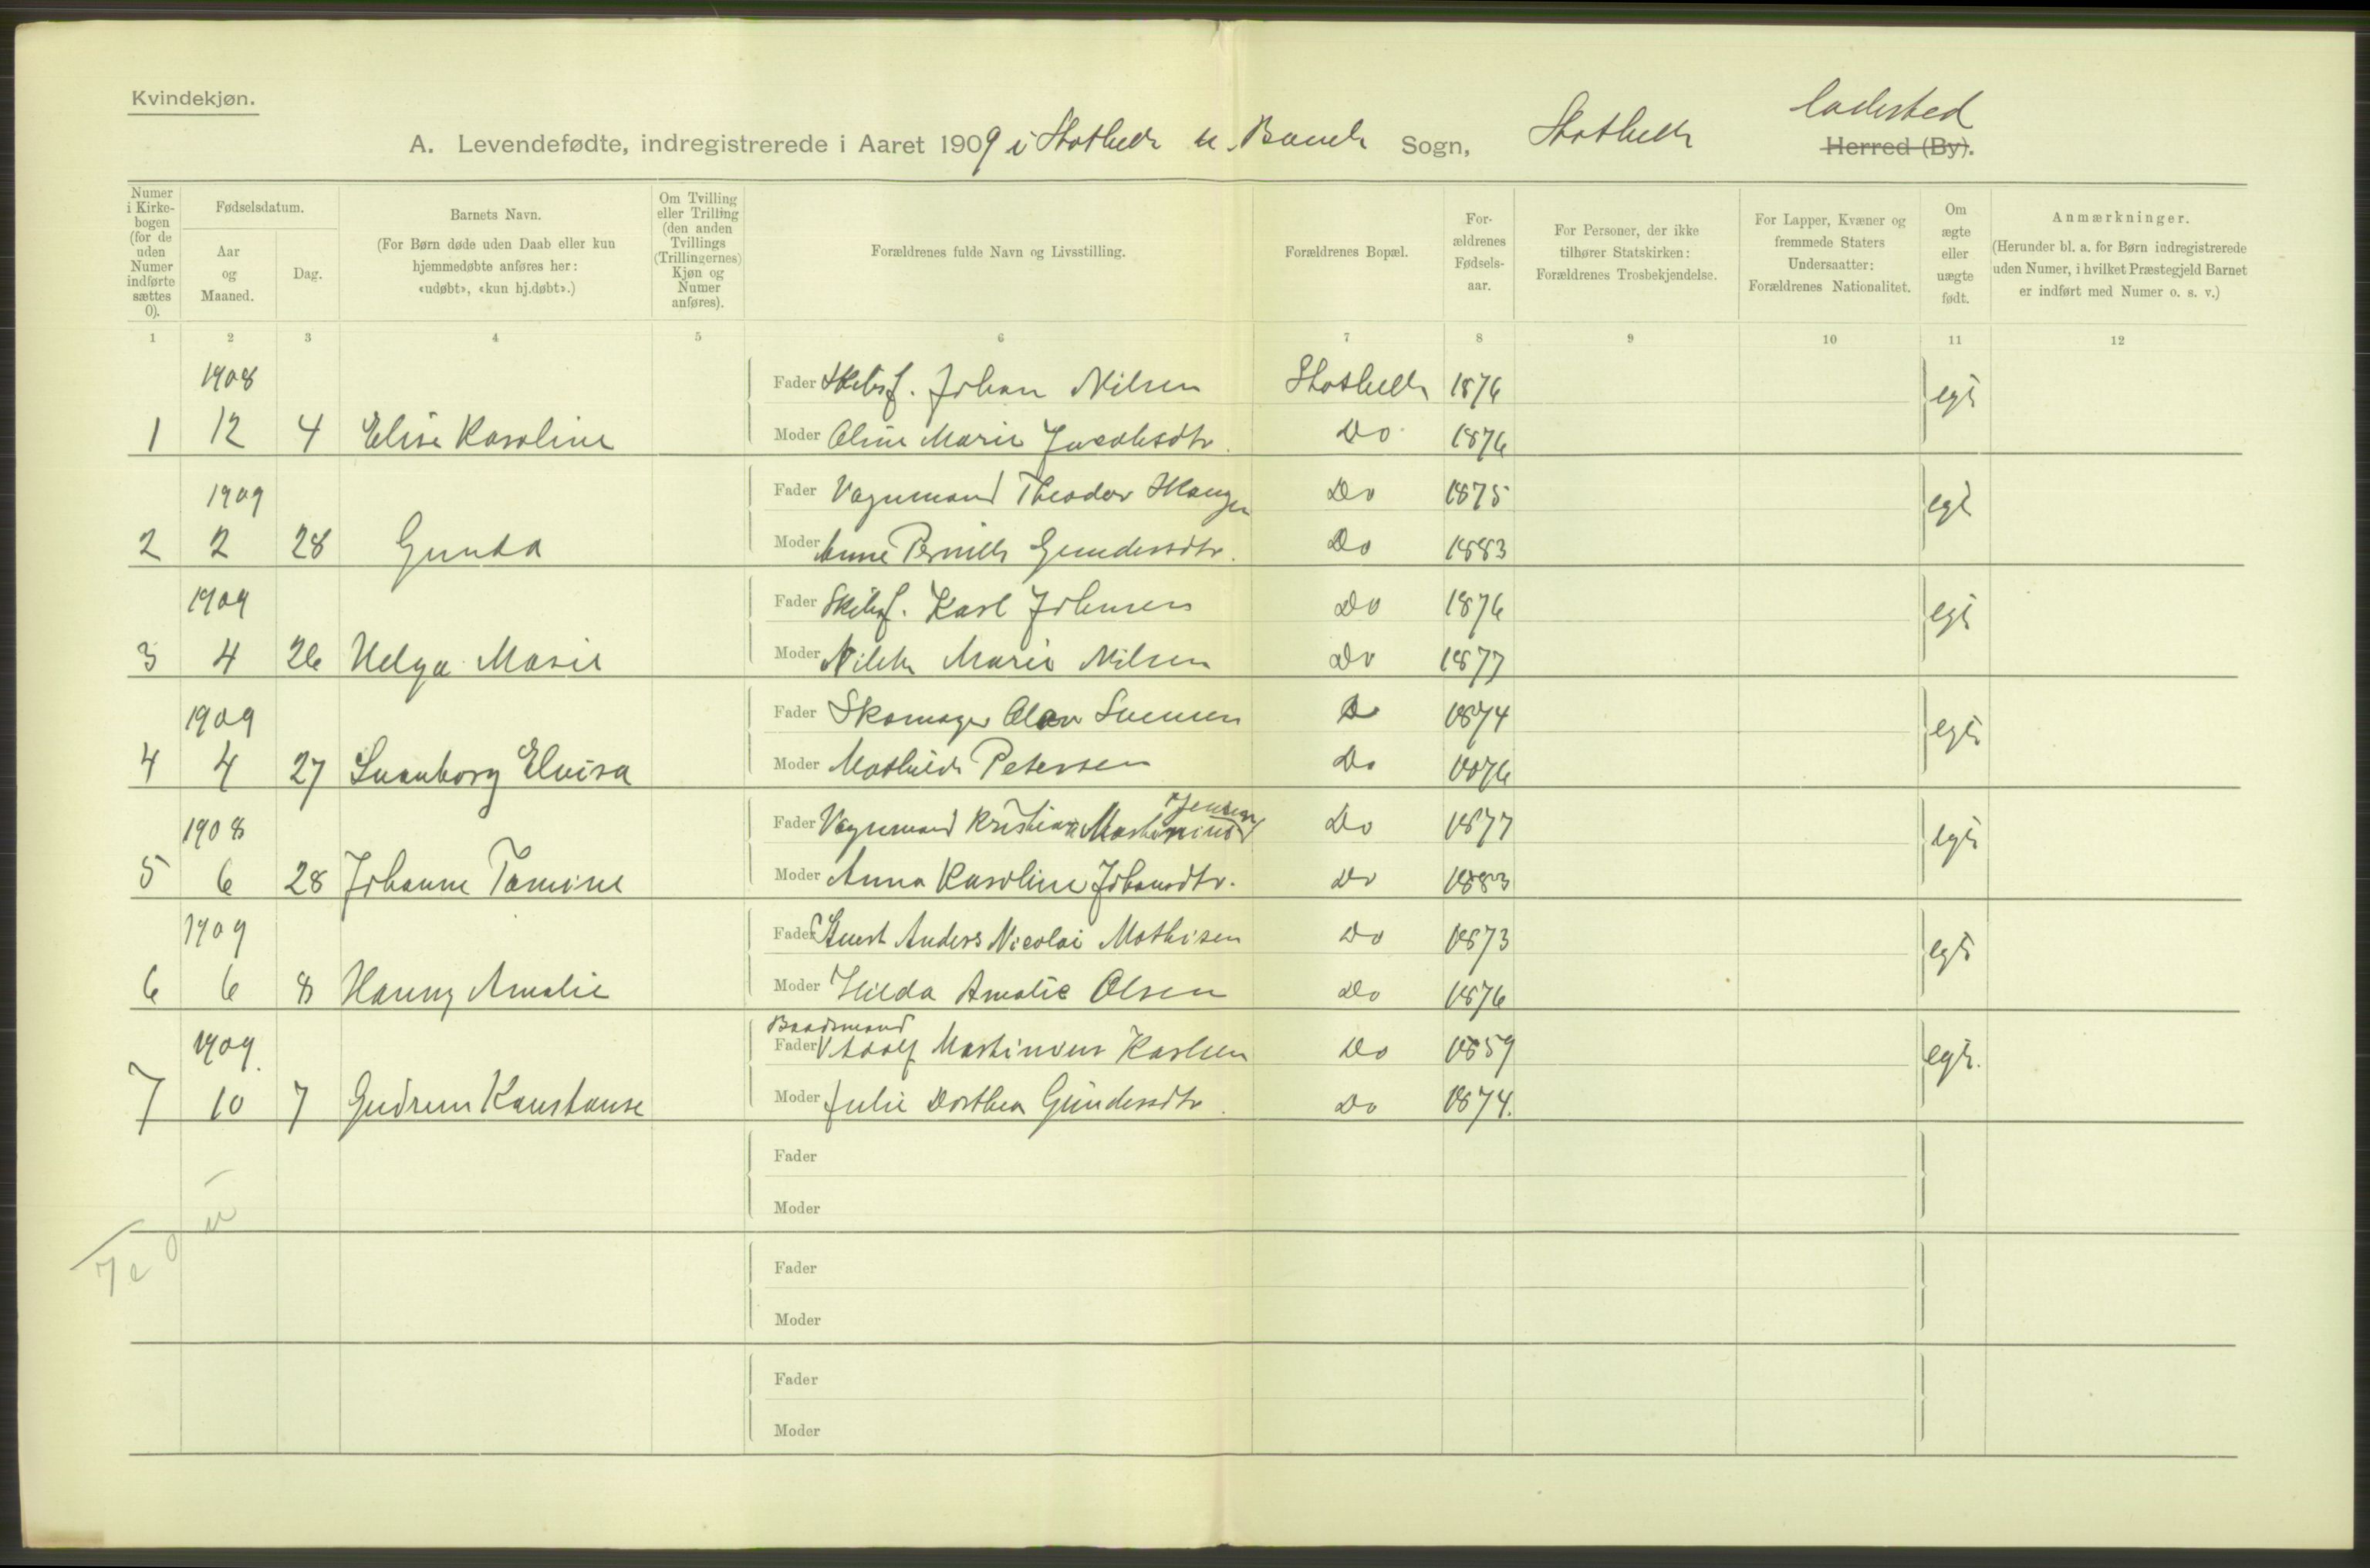 Kvindekjøn.
ladested
A. Levendefødte, indregistrerede i Aaret 1909 i Stathelle u. Bamle Sogn, Stathelle Herred (By).
Numer i Kirkebogen (for de uden Numer indførte sættes 0).
Fødselsdatum.
Aar og Maaned.
Dag.
Barnets Navn.
(For Børn døde uden Daab eller kun hjemmedøbte anføres her: «udøbt», «kun hj.døbt».)
Om Tvilling eller Trilling (den anden Tvillings (Trillingernes) Kjøn og Numer anføres).
Forældrenes fulde Navn og Livsstilling.
Forældrenes Bopæl.
Forældrenes Fødselsaar.
For Personer, der ikke tilhører Statskirken: Forældrenes Trosbekjendelse.
For Lapper, Kvæner og fremmede Staters Undersaatter: Forældrenes Nationalitet.
Om ægte eller uægte født.
Anmærkninger.
(Herunder bl. a. for Børn indregistrerede uden Numer, i hvilket Præstegjeld Barnet er indført med Numer o. s. v.)
1 2 3 4 5 6 7 8 9 10 11 12
1908 Fader Skibsf. Johan Nilsen Stathelle 1876 egte
1 12 4 Elise Karoline Moder Oline Marie Jacobsdtr. Do 1876
1909 Fader Vognmand Theodor Haugen Do 1875 egte
2 2 28 Gunda Moder Anne Pernille Gundersdtr. Do 1883
1909 Fader Skibsf. Karl Johnsen Do 1876 egte
3 4 26 Helga Marie Moder Marie Nilsen Do 1877
1909 Fader Skomager Olav Do 1874 egte
4 4 27 Svanborg Elvira Moder Mathilde Petersen Do 1876
1908 Fader Vognmand Kristian Martinius Jensen Do 1877 egte
5 6 28 Johanne Tomine Moder Anna Karoline Johansdtr. Do 1883
1909 Fader Anders Nicolai Mathisen Do 1873 egte
6 6 8 Hanny Amalie Moder Hilda Amalie Olsen Do 1876
Baadsmand
1909. Fader Adolf Martinius Karlsen Do 1859 egte.
7 10 7 Gudrun Konstanse Moder Julie Dorthea Gundersdtr. Do 1874.
Fader
Moder
Fader
Moder
Fader
Moder